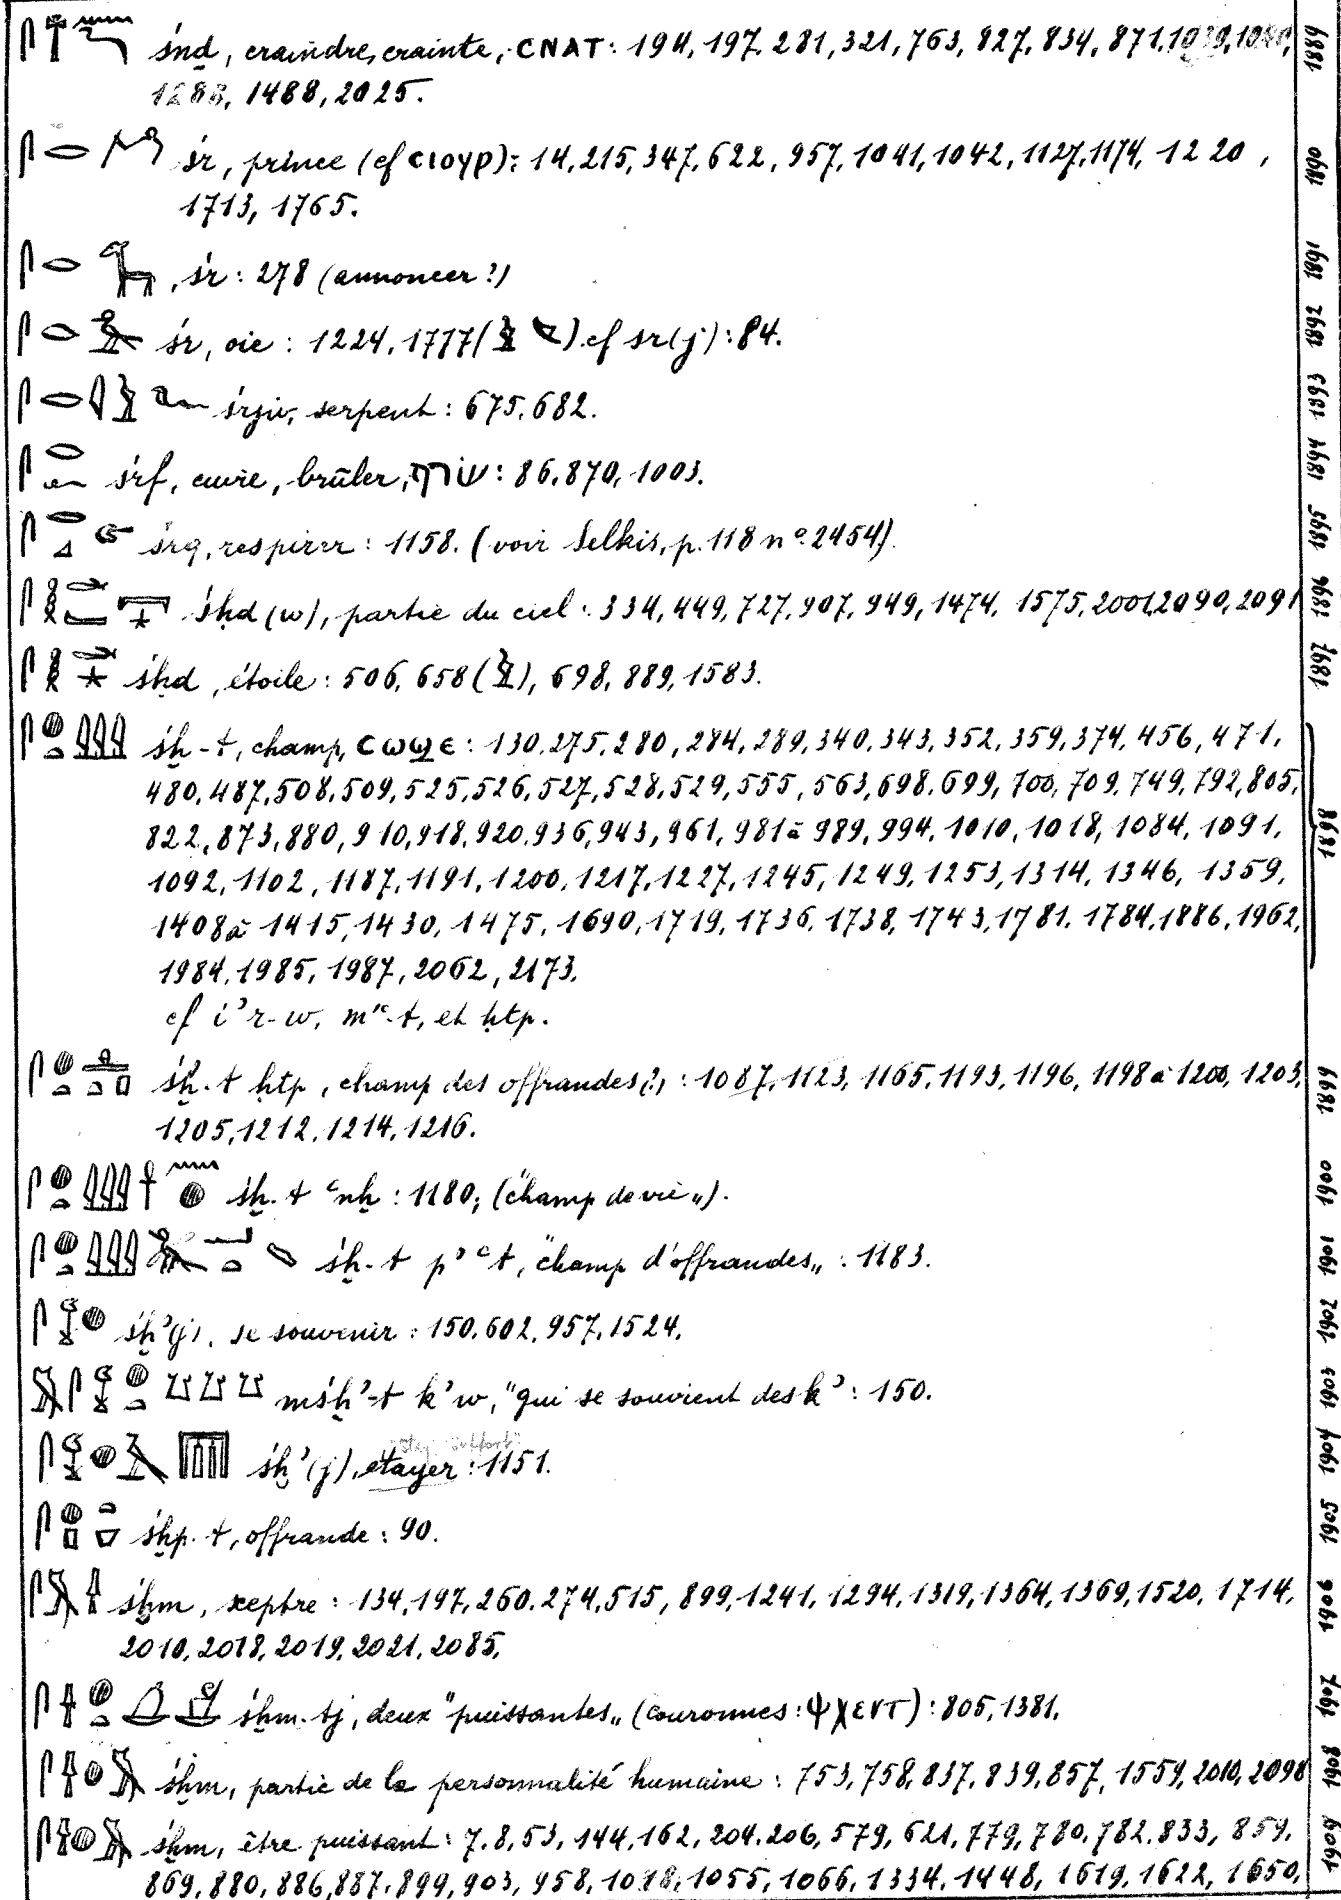 śnḏ, craindre, crainte, CNAT: 194, 197, 281, 321, 763, 827, 834, 871, 1039, 1889
1488, 2025.
śr, prince (cf CIOYP): 14, 215, 347, 622, 957, 1041, 1042, 1127, 1174, 1220, 1890
1713, 1765.
, śr: 278 (annoncer?) 1891
śr, oie: 1224, 1777( ) cf sr(j): 84. 1892
śrjw, serpent: 675, 682. 1893
śrf, cuire, brûler, שרף: 86, 870, 1003. 1894
śrq, respirer: 1158. (voir Selkis, p. 118 n° 2454). 1895
śḥd(w), partie du ciel: 334, 449, 727, 907, 949, 1474, 1575, 2001, 2090, 2091 1896
śḥd, étoile: 506, 658( ), 698, 889, 1583. 1897
śḫ-t, champ, CⲰϢⲈ: 130, 275, 280, 284, 289, 340, 343, 352, 359, 374, 456, 471,
480, 487, 508, 509, 525, 526, 527, 528, 529, 555, 563, 698, 699, 700, 709, 749, 792, 805,
822, 873, 880, 910, 918, 920, 936, 943, 961, 981 à 989, 994, 1010, 1018, 1084, 1091, 1898
1092, 1102, 1187, 1191, 1200, 1217, 1227, 1245, 1249, 1253, 1314, 1346, 1359,
1408 à 1415, 1430, 1475, 1690, 1719, 1736, 1738, 1743, 1781, 1784, 1886, 1962,
1984, 1985, 1987, 2062, 2173.
cf iʾr-w, mʾʿ-t, et ḥtp.
śḫ-t ḥtp, champ des offrandes(?): 1087, 1123, 1165, 1193, 1196, 1198 à 1200, 1203, 1899
1205, 1212, 1214, 1216.
śḫ-t ʿnḫ: 1180; ("champ de vie„). 1900
śḫ-t pʾʿt, "champ d'offrandes„: 1183. 1901
śḫʾ(j), se souvenir: 150, 602, 957, 1524. 1902
mśḫʾ-t kʾw, "qui se souvient des kʾ: 150. 1903
śḫʾ(j), étayer: 1151. 1904
śḫp-t, offrande: 90. 1905
śḫm, sceptre: 134, 197, 260, 274, 515, 899, 1241, 1294, 1319, 1364, 1369, 1520, 1714, 1906
2010, 2018, 2019, 2021, 2085,
śḫm-tj, deux "puissantes„ (couronnes: ψχεντ): 805, 1381. 1907
śḫm, partie de la personnalité humaine: 753, 758, 837, 839, 857, 1559, 2010, 2098 1908
śḫm, être puissant: 7, 8, 53, 144, 162, 204, 206, 579, 621, 779, 780, 782, 833, 859, 1909
869, 880, 886, 887, 899, 903, 958, 1018, 1055, 1066, 1334, 1448, 1619, 1622, 1650,